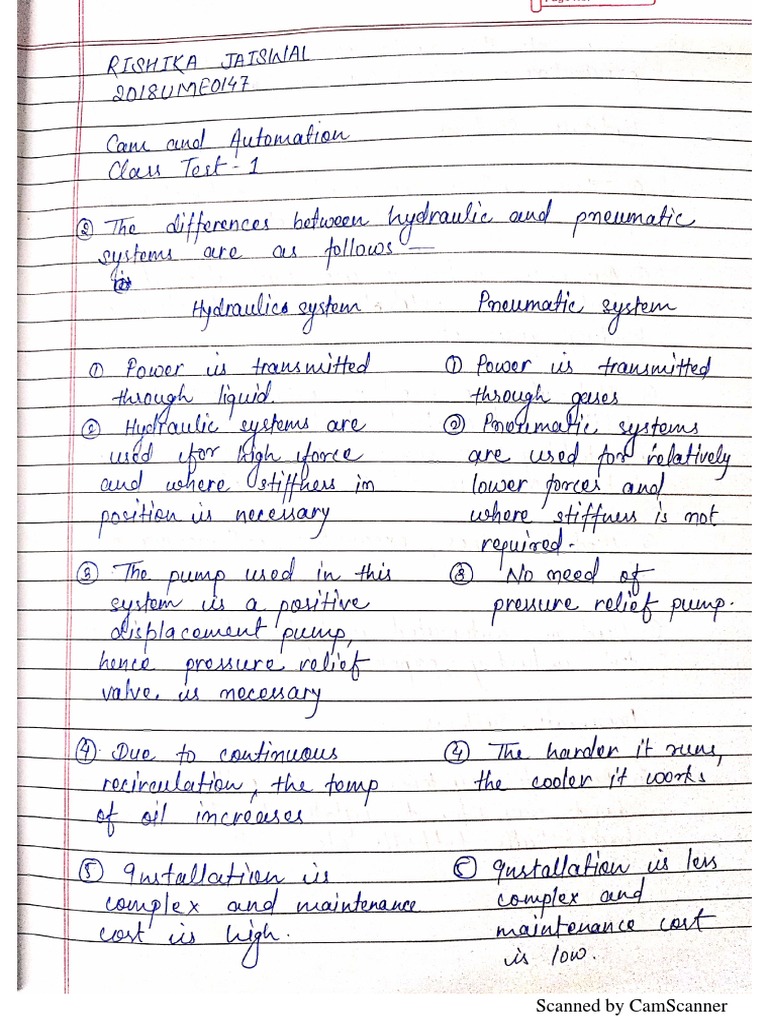 RISHIKA JAISWAL
2018UME0147
Cam and Automation
Class Test - 1
② The differences between hydraulic and pneumatic
systems are as follows —
Hydraulic system
Pneumatic system
① Power is transmitted
through liquid.
② Hydraulic systems are
used for high force
and where stiffness in
position is necessary
③ The pump used in this
system is a positive
displacement pump,
hence pressure relief
valve is necessary
④ Due to continuous
recirculation, the temp
of oil increases
⑤ Installation is
complex and maintenance
cost is high.
① Power is transmitted
through gases
② Pneumatic systems
are used for relatively
lower forces and
where stiffness is not
required.
③ No need of
pressure relief pump.
④ The harder it runs,
the cooler it works
⑤ Installation is less
complex and
maintenance cost
is low.
Scanned by CamScanner